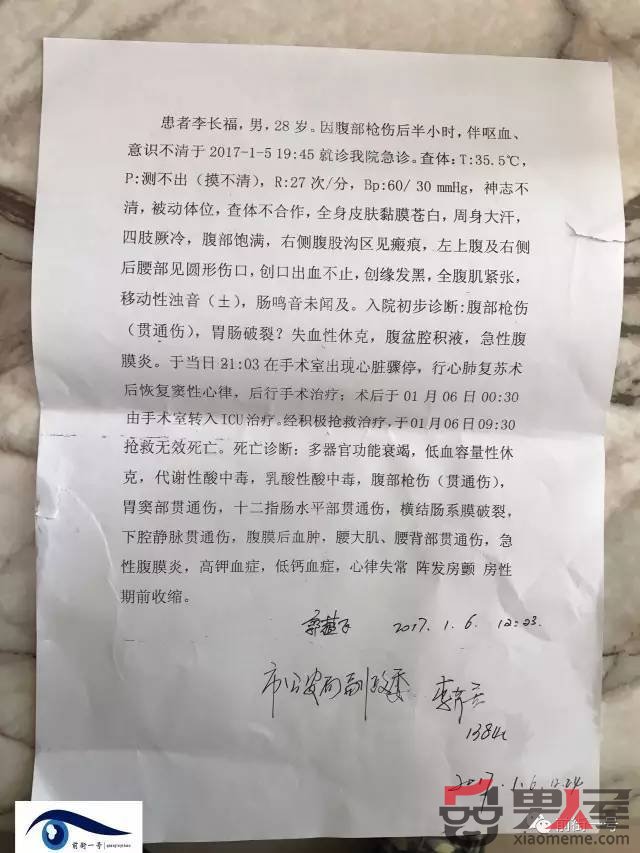 患者李长福，男，28 岁。因腹部枪伤后半小时，伴呕血、
意识不清于 2017-1-5 19:45 就诊我院急诊。查体：T:35.5℃，
P:测不出（摸不清），R:27 次/分，Bp:60/ 30 mmHg，神志不
清，被动体位，查体不合作，全身皮肤黏膜苍白，周身大汗，
四肢厥冷，腹部饱满，右侧腹股沟区见瘢痕，左上腹及右侧
后腰部见圆形伤口，创口出血不止，创缘发黑，全腹肌紧张，
移动性浊音（土），肠鸣音未闻及。入院初步诊断：腹部枪伤
（贯通伤），胃肠破裂？失血性休克，腹盆腔积液，急性腹
膜炎。于当日 21:03 在手术室出现心脏骤停，行心肺复苏术
后恢复窦性心律，后行手术治疗；术后于 01 月 06 日 00:30
由手术室转入 ICU 治疗。经积极抢救治疗，于 01 月 06 日 09:30
抢救无效死亡。死亡诊断：多器官功能衰竭，低血容量性休
克，代谢性酸中毒，乳酸性酸中毒，腹部枪伤（贯通伤），
胃窦部贯通伤，十二指肠水平部贯通伤，横结肠系膜破裂，
下腔静脉贯通伤，腹膜后血肿，腰大肌、腰背部贯通伤，急
性腹膜炎，高钾血症，低钙血症，心律失常 阵发房颤 房性
期前收缩。
2017. 1. 6. 12:23.
市公安局副政委
2017. 1. 6. 12.24
前街一号
qianjieyihao
前街一号
男人屋
xiaomeme.com